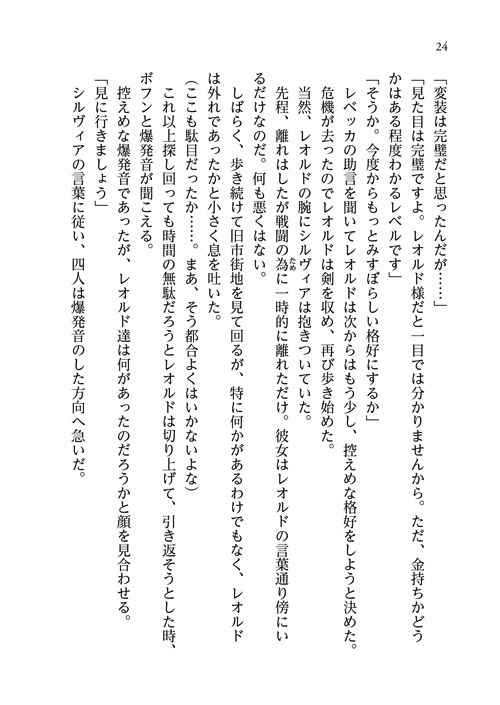 24
「変装は完璧だと思ったんだが……」
「見た目は完璧ですよ。レオルド様だと一目では分かりませんから。ただ、金持ちかどう
かはある程度わかるレベルです」
「そうか。今度からもっとみすぼらしい格好にするか」
レベッカの助言を聞いてレオルドは次からはもう少し、控えめな格好をしようと決めた。
危機が去ったのでレオルドは剣を収め、再び歩き始めた。
当然、レオルドの腕にシルヴィアは抱きついていた。
先程、離れはしたが戦闘の為に一時的に離れただけ。彼女はレオルドの言葉通り傍にい
るだけなのだ。何も悪くはない。
しばらく、歩き続けて旧市街地を見て回るが、特に何かがあるわけでもなく、レオルド
は外れであったかと小さく息を吐いた。
（ここも駄目だったか……。まあ、そう都合よくはいかないよな）
これ以上探し回っても時間の無駄だろうとレオルドは切り上げて、引き返そうとした時、
ボフンと爆発音が聞こえる。
控えめな爆発音であったが、レオルド達は何があったのだろうかと顔を見合わせる。
「見に行きましょう」
シルヴィアの言葉に従い、四人は爆発音のした方向へ急いだ。